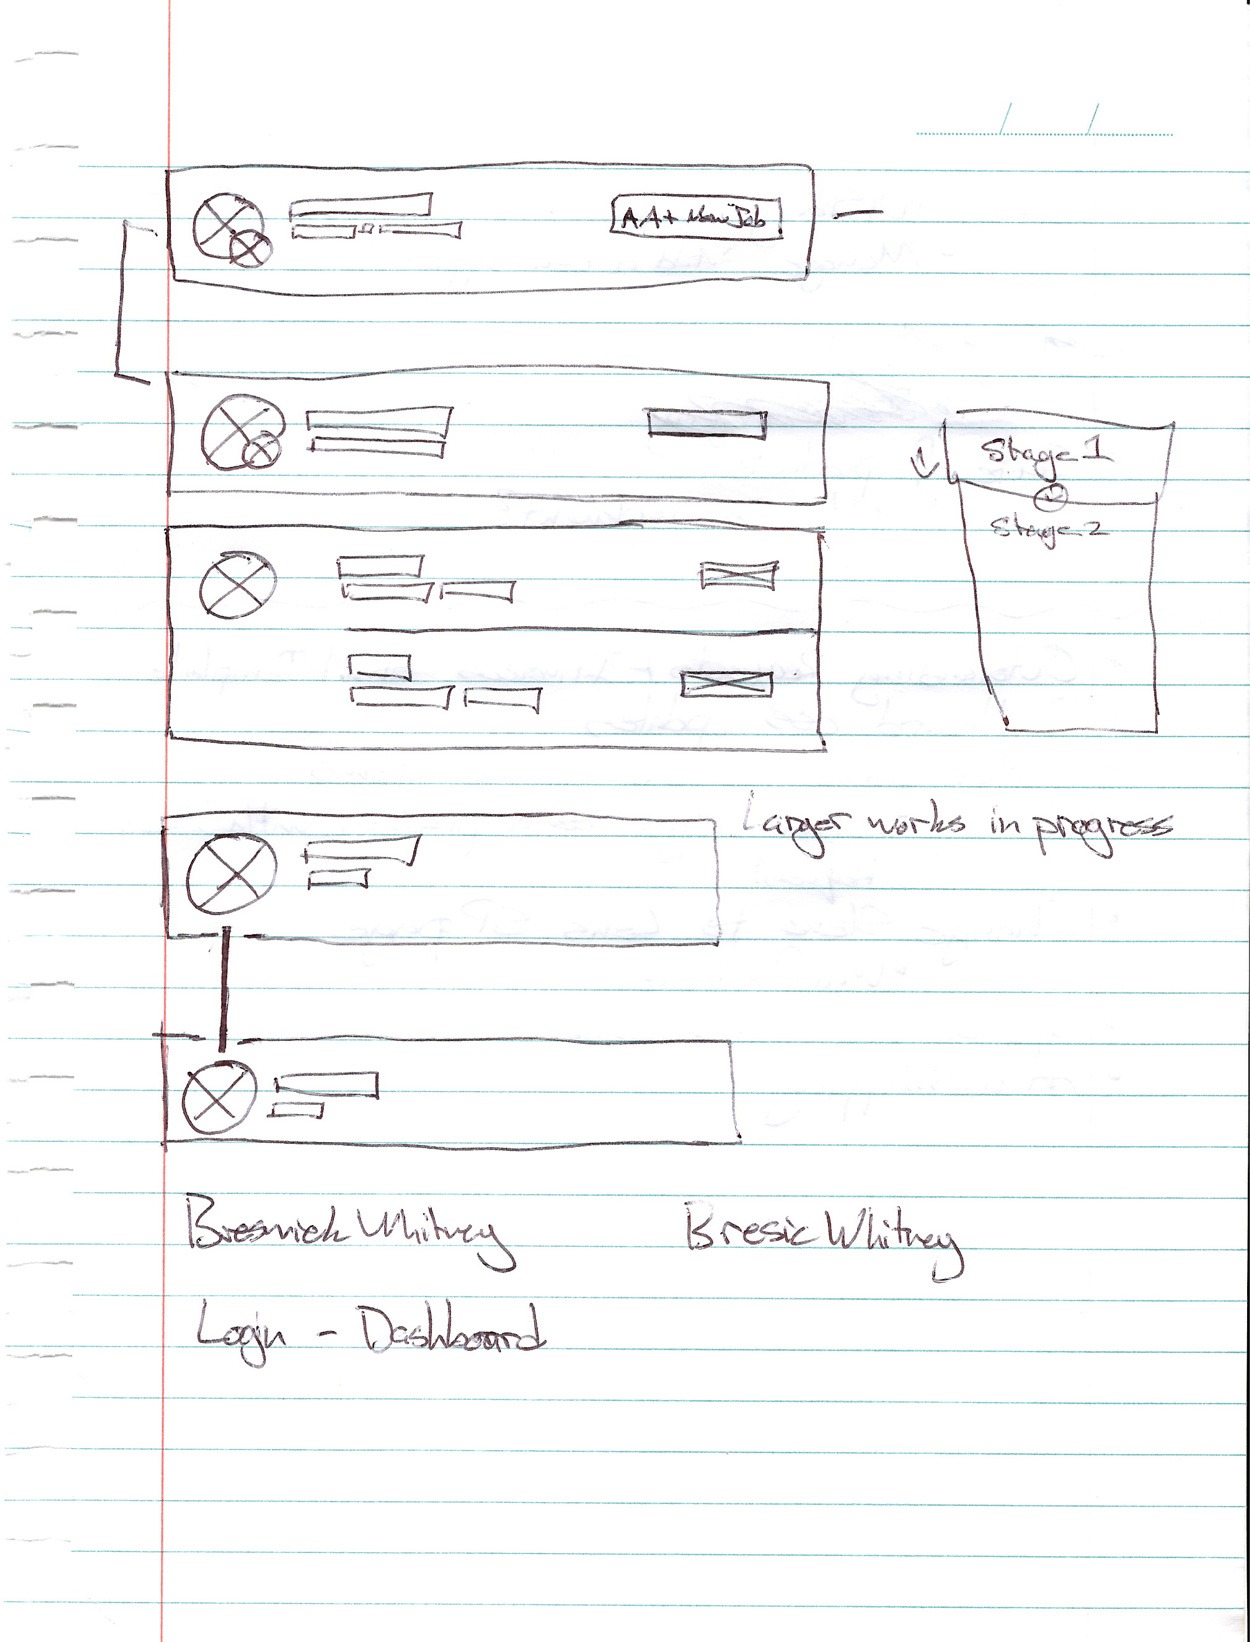 AA+ New Job
Stage 1
Stage 2
Larger works in progress
Bresnick Whitney
Bresic Whitney
Login - Dashboard